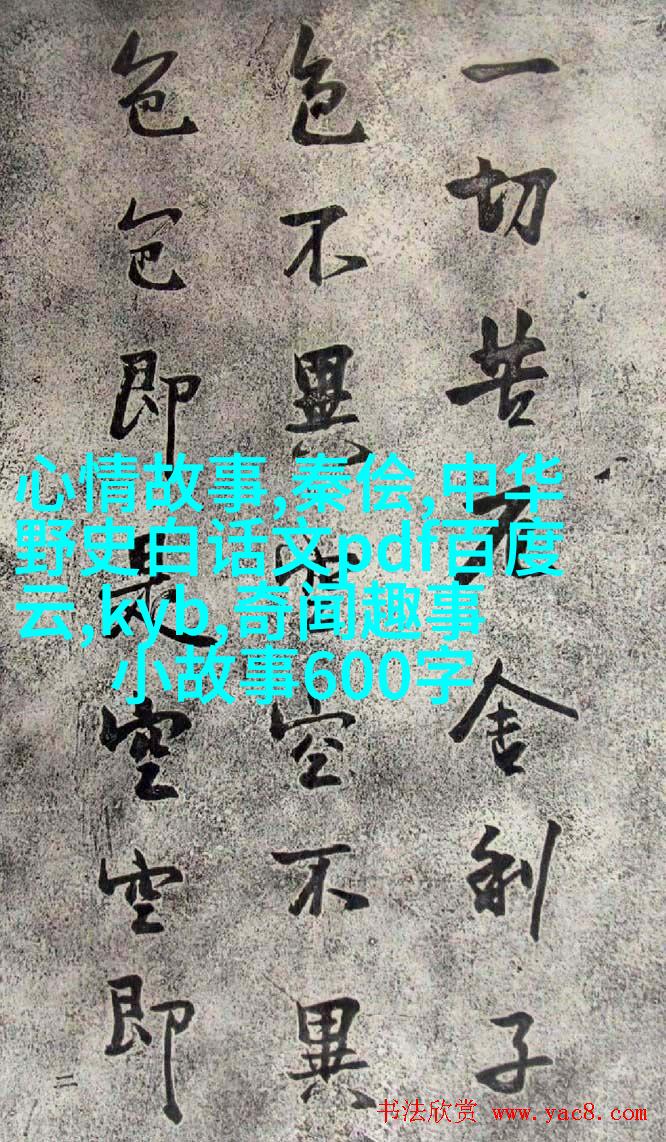 一切苦厄舍利子
色不異空空不異
色色即是空空即
二
心情故事,秦侩,中华
野史白话文pdf百度
云,kyb,奇闻趣事
小故事600字
书法欣赏 www.yac8.com